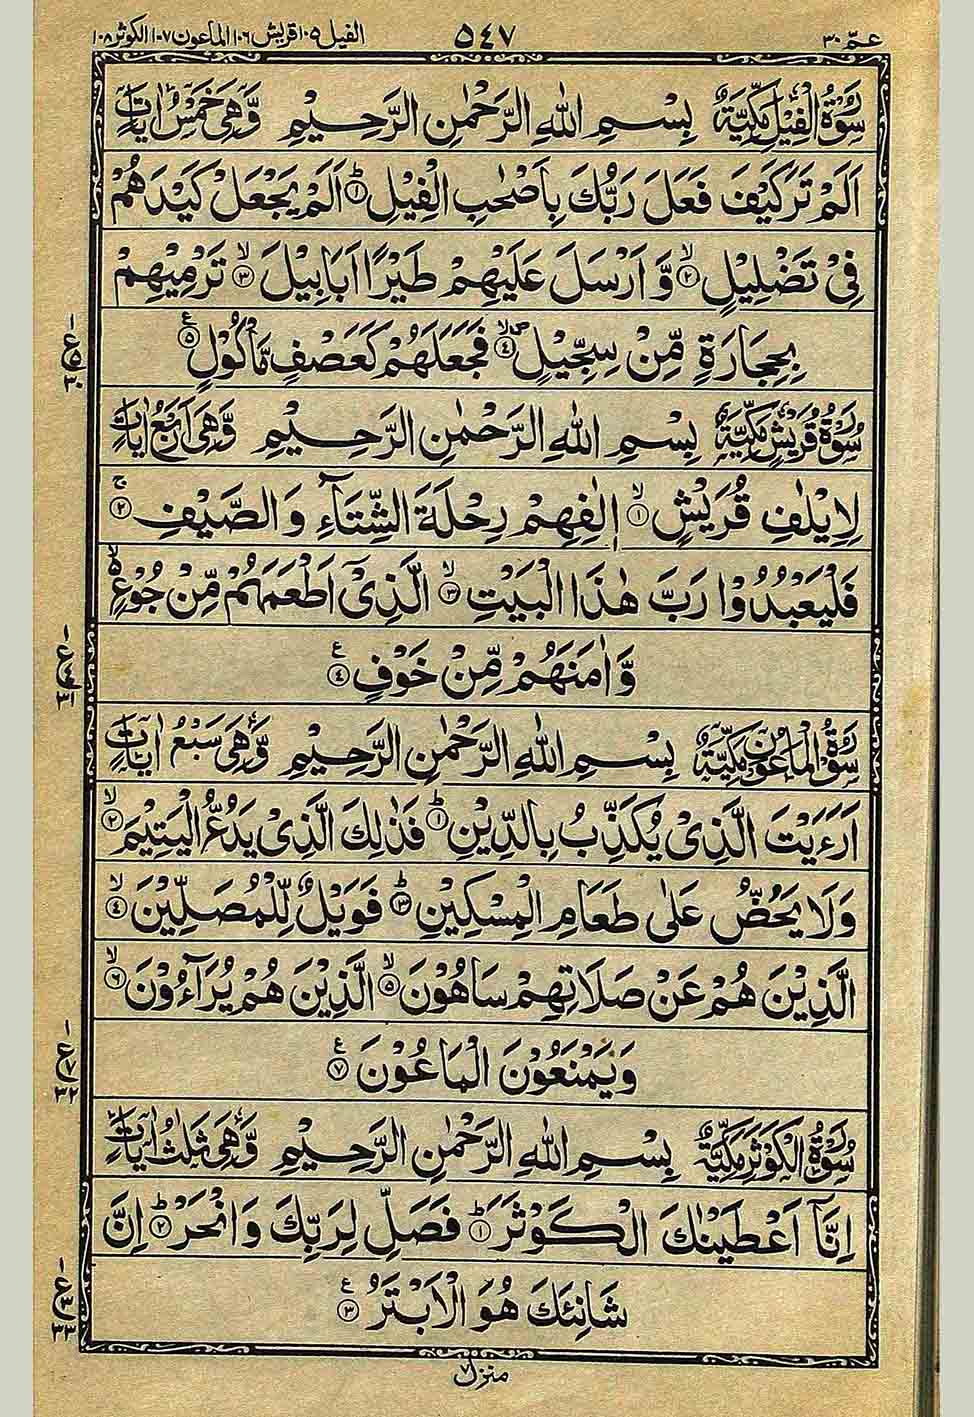 عمّ ٣٠
٥٤٧
الفيل ١٠٥ قريش ١٠٦ الماعون ١٠٧ الكوثر ١٠٨
سُوْرَةُ الْفِيْلِ مَكِّيَّةٌ بِسْمِ اللّٰهِ الرَّحْمٰنِ الرَّحِيْمِ وَّهِىَ خَمْسُ اٰيَاتٍ
اَلَمْ تَرَ كَيْفَ فَعَلَ رَبُّكَ بِاَصْحٰبِ الْفِيْلِؕ ١ اَلَمْ يَجْعَلْ كَيْدَهُمْ
فِىْ تَضْلِيْلٍۙ ٢ وَّاَرْسَلَ عَلَيْهِمْ طَيْرًا اَبَابِيْلَۙ ٣ تَرْمِيْهِمْ
بِحِجَارَةٍ مِّنْ سِجِّيْلٍ ٤ فَجَعَلَهُمْ كَعَصْفٍ مَّاْكُوْلٍ ٥ ع
سُوْرَةُ قُرَيْشٍ مَكِّيَّةٌ بِسْمِ اللّٰهِ الرَّحْمٰنِ الرَّحِيْمِ وَّهِىَ اَرْبَعُ اٰيَاتٍ
لِاِيْلٰفِ قُرَيْشٍۙ ١ اٖلٰفِهِمْ رِحْلَةَ الشِّتَآءِ وَالصَّيْفِۚ ٢
فَلْيَعْبُدُوْا رَبَّ هٰذَا الْبَيْتِۙ ٣ الَّذِىْٓ اَطْعَمَهُمْ مِّنْ جُوْعٍ ۙ
وَّاٰمَنَهُمْ مِّنْ خَوْفٍ ٤ ع
سُوْرَةُ الْمَاعُوْنِ مَكِّيَّةٌ بِسْمِ اللّٰهِ الرَّحْمٰنِ الرَّحِيْمِ وَّهِىَ سَبْعُ اٰيَاتٍ
اَرَءَيْتَ الَّذِىْ يُكَذِّبُ بِالدِّيْنِؕ ١ فَذٰلِكَ الَّذِىْ يَدُعُّ الْيَتِيْمَۙ ٢
وَلَا يَحُضُّ عَلٰى طَعَامِ الْمِسْكِيْنِؕ ٣ فَوَيْلٌ لِّلْمُصَلِّيْنَۙ ٤
الَّذِيْنَ هُمْ عَنْ صَلَاتِهِمْ سَاهُوْنَۙ ٥ الَّذِيْنَ هُمْ يُرَآءُوْنَۙ ٦
وَيَمْنَعُوْنَ الْمَاعُوْنَ ٧ ع
سُوْرَةُ الْكَوْثَرِ مَكِّيَّةٌ بِسْمِ اللّٰهِ الرَّحْمٰنِ الرَّحِيْمِ وَّهِىَ ثَلٰثُ اٰيَاتٍ
اِنَّآ اَعْطَيْنٰكَ الْكَوْثَرَؕ ١ فَصَلِّ لِرَبِّكَ وَانْحَرْؕ ٢ اِنَّ
شَانِئَكَ هُوَ الْاَبْتَرُ ٣ ع
منزل ٧